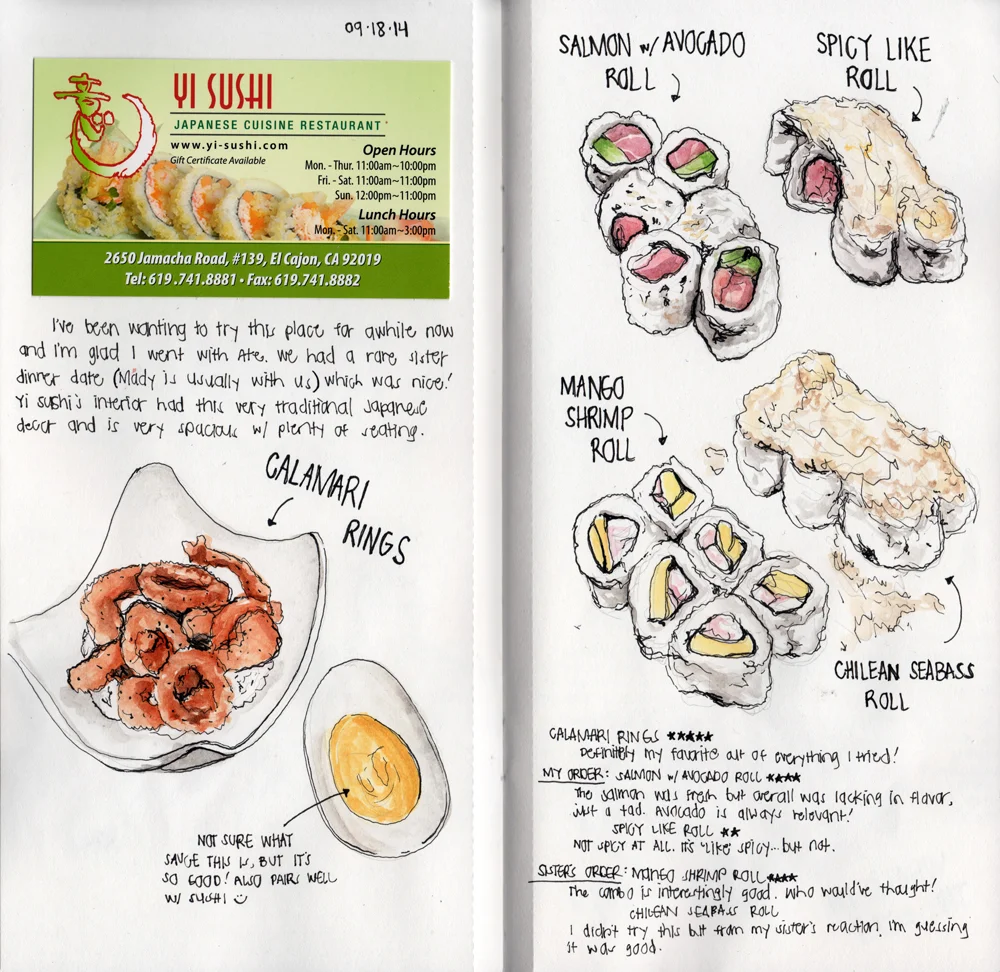 09·18·14
YI SUSHI
JAPANESE CUISINE RESTAURANT
www.yi-sushi.com
Gift Certificate Available
Open Hours
Mon. - Thur. 11:00am~10:00pm
Fri. - Sat. 11:00am~11:00pm
Sun. 12:00pm~11:00pm
Lunch Hours
Mon. - Sat. 11:00am~3:00pm
2650 Jamacha Road, #139, El Cajon, CA 92019
Tel: 619.741.8881 · Fax: 619.741.8882
I've been wanting to try this place for awhile now
and I'm glad I went with Ate. We had a rare sister
dinner date (Mády is usually with us) which was nice!
Yi sushi's interior had this very traditional Japanese
decor and is very spacious w/ plenty of seating.
CALAMARI
RINGS
NOT SURE WHAT
SAUCE THIS IS, BUT IT'S
SO GOOD! ALSO PAIRS WELL
W/ SUSHI ☺
SALMON w/ AVOCADO
ROLL
SPICY LIKE
ROLL
MANGO
SHRIMP
ROLL
CHILEAN SEABASS
ROLL
CALAMARI RINGS ★★★★★
Definitely my favorite out of everything I tried!
MY ORDER: SALMON w/ AVOCADO ROLL ★★★★
The salmon was fresh but overall was lacking in flavor,
just a tad. Avocado is always relevant!
SPICY LIKE ROLL ★★
NOT SPICY AT ALL. IT'S "LIKE" SPICY... but not.
SISTER'S ORDER: MANGO SHRIMP ROLL ★★★★
The combo is interestingly good. Who would've thought!
CHILEAN SEABASS ROLL
I didn't try this but from my sister's reaction, I'm guessing
it was good.